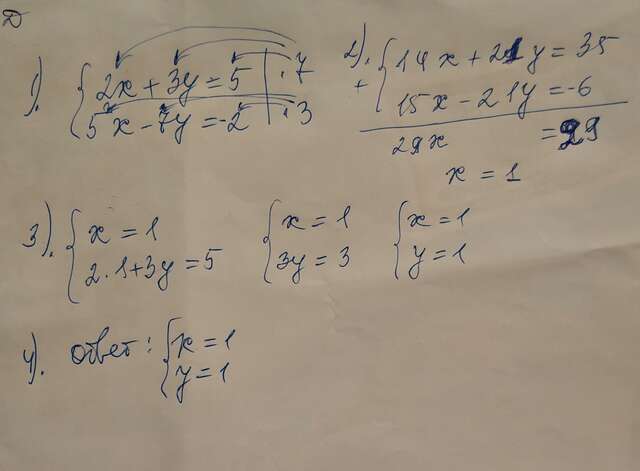 Д
1). { 2x + 3y = 5 | · 7
5x - 7y = -2 | · 3
2). + { 14x + 21y = 35
15x - 21y = -6
29x = 29
x = 1
3). { x = 1
2 · 1 + 3y = 5
{ x = 1
3y = 3
{ x = 1
y = 1
4). ответ: { x = 1
y = 1